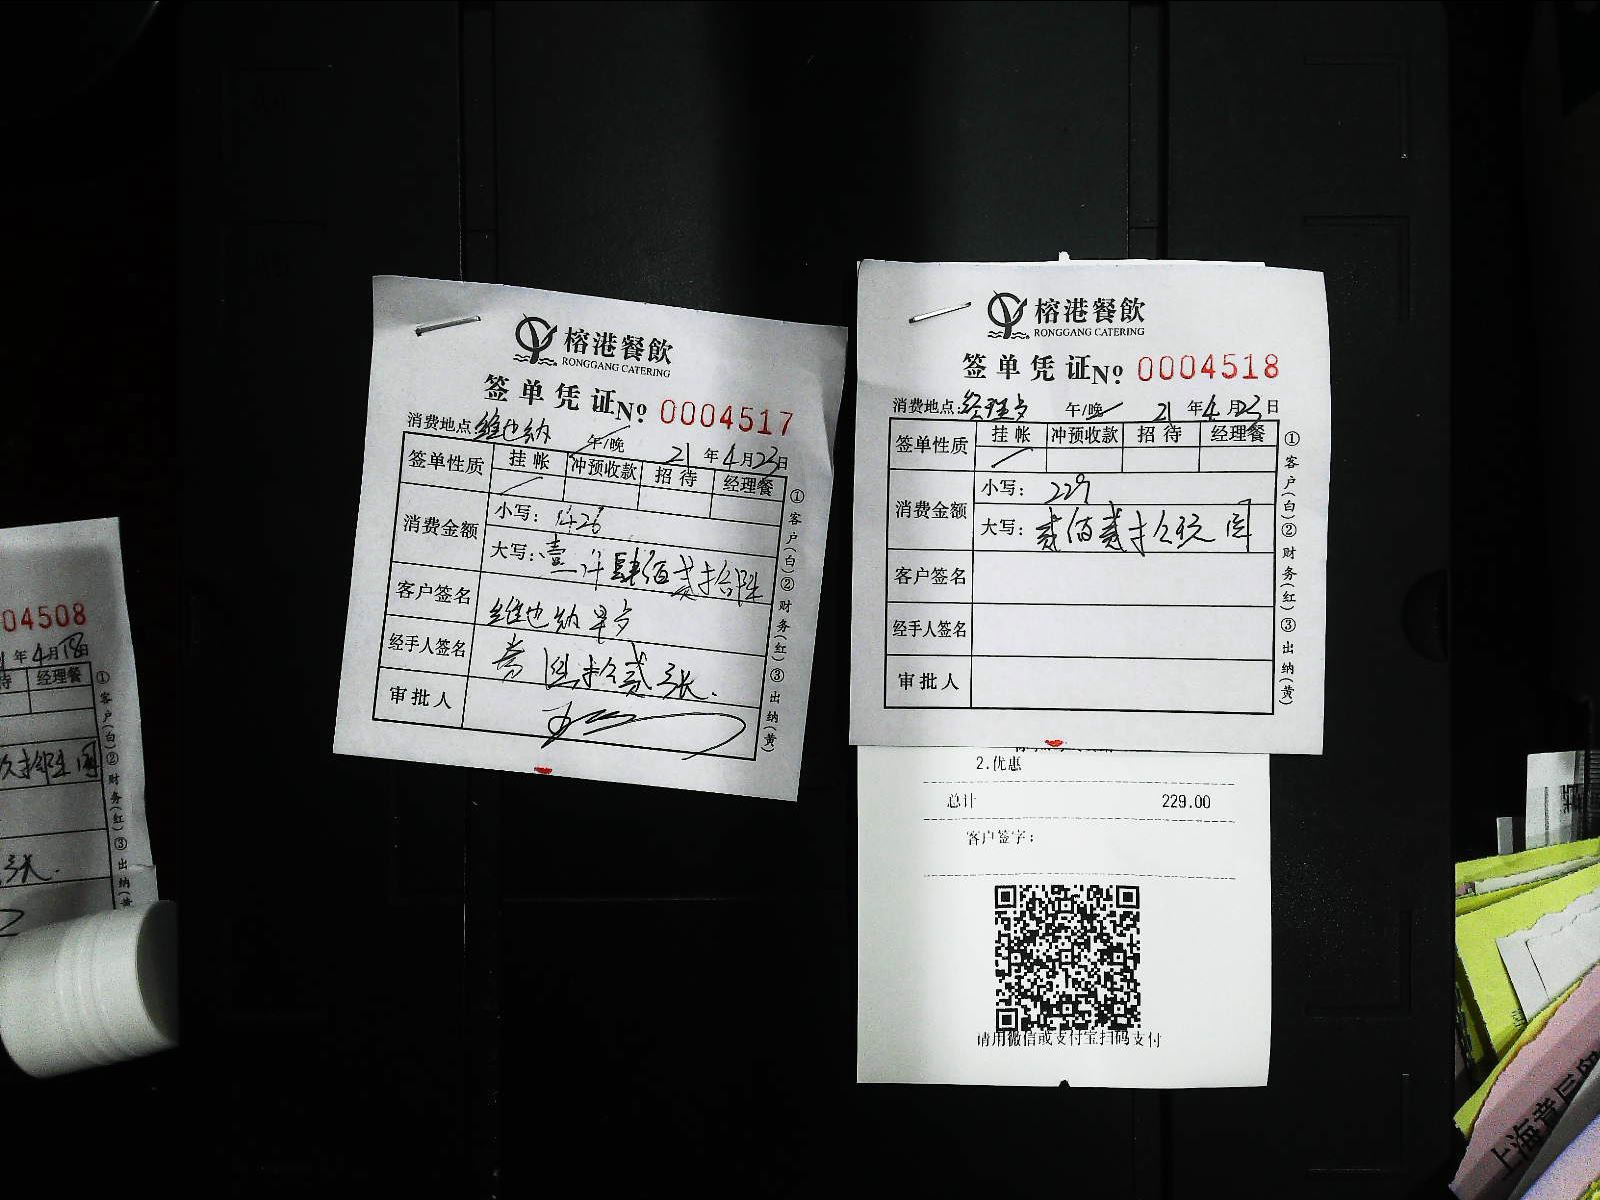 04508
年4月18日
待 经理餐
①客户(白)②财务(红)③出纳(黄
榕港餐飲
RONGGANG CATERING
签单凭证№ 0004517
消费地点:维也纳 午/晚 21年4月23日
签单性质 挂帐 冲预收款 招待 经理餐
消费金额 小写: 1426
大写: 壹仟肆佰贰拾陆
客户签名 维也纳早歺
经手人签名 叁拾贰张.
审批人
①客户(白)②财务(红)③出纳(黄)
榕港餐飲
RONGGANG CATERING
签单凭证№ 0004518
消费地点:经理歺 午/晚 21年4月23日
签单性质 挂帐 冲预收款 招待 经理餐
消费金额 小写: 229
大写: 贰佰贰拾玖圆
客户签名
经手人签名
审批人
①客户(白)②财务(红)③出纳(黄)
2.优惠
总计 229.00
客户签字:
请用微信或支付宝扫码支付
上海章